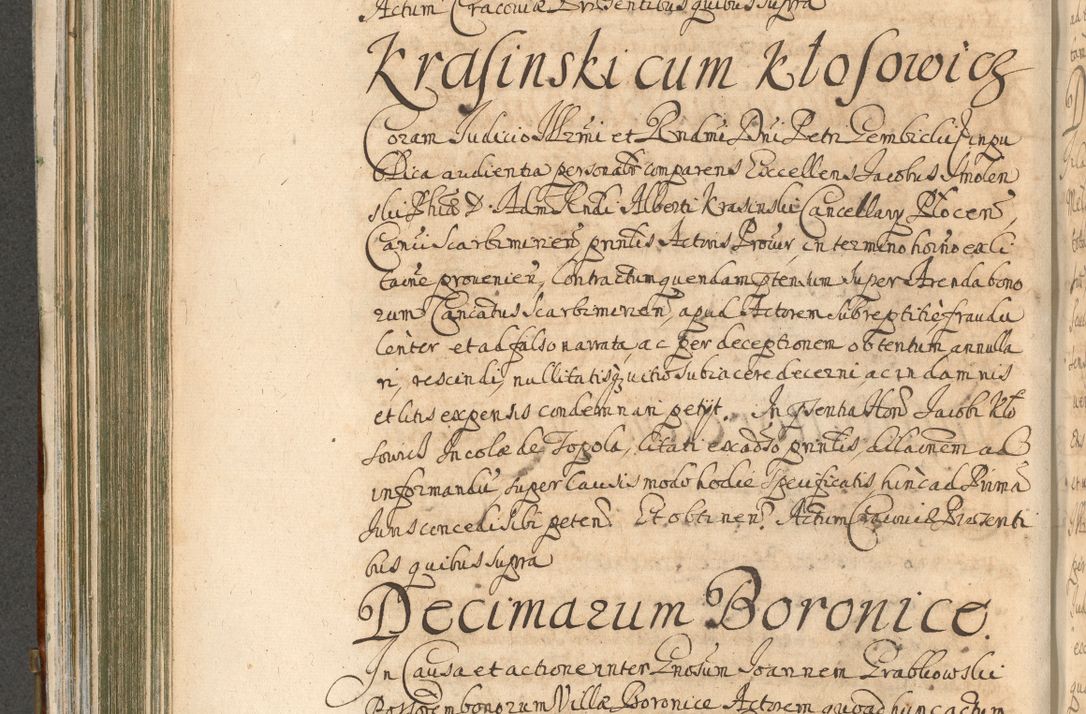 Actum Cracoviæ Præsentibus quibus supra
Krasinski cum Kłosowicz
Coram Judicio Illrmi et Rndmi Dni Petri Gembicki in pu
blica audientia personalr comparens Excellens Jacobus Smolen
ski Phiæ D. Adm Rndi Alberti Krasinski Cancellarij Plocen,
Canci Scarbimirien prntis Actoris Procur in termino horno ex li
tacne provenien, Contractum quendam ptensum super Arenda bono
rum Cancatus Scarbimirien, apud Actorem subreptitie, fraudu
lenter et ad falso narrata, ac per deceptionem obtentum annulla
ri, rescindi, nullitatisq vitio subiacere decerni, ac in damnis
et litis expensis condemnari petijt. In psentia Hon Jacobi Kło
sowicz Incolæ de Topola, citati ex adso prntis, dilaonem ad
informandu, super causis modo hodie specificatis hinc ad Prima
Juris concedi sibi peten. Et obtinen. Actum Cracoviæ Præsenti
bus quibus supra
Decimarum Boronice.
In Causa et actione inter Gnosum Joannem Grabkowski
bonorum Villæ Boronice Actorem quoad hunc actum